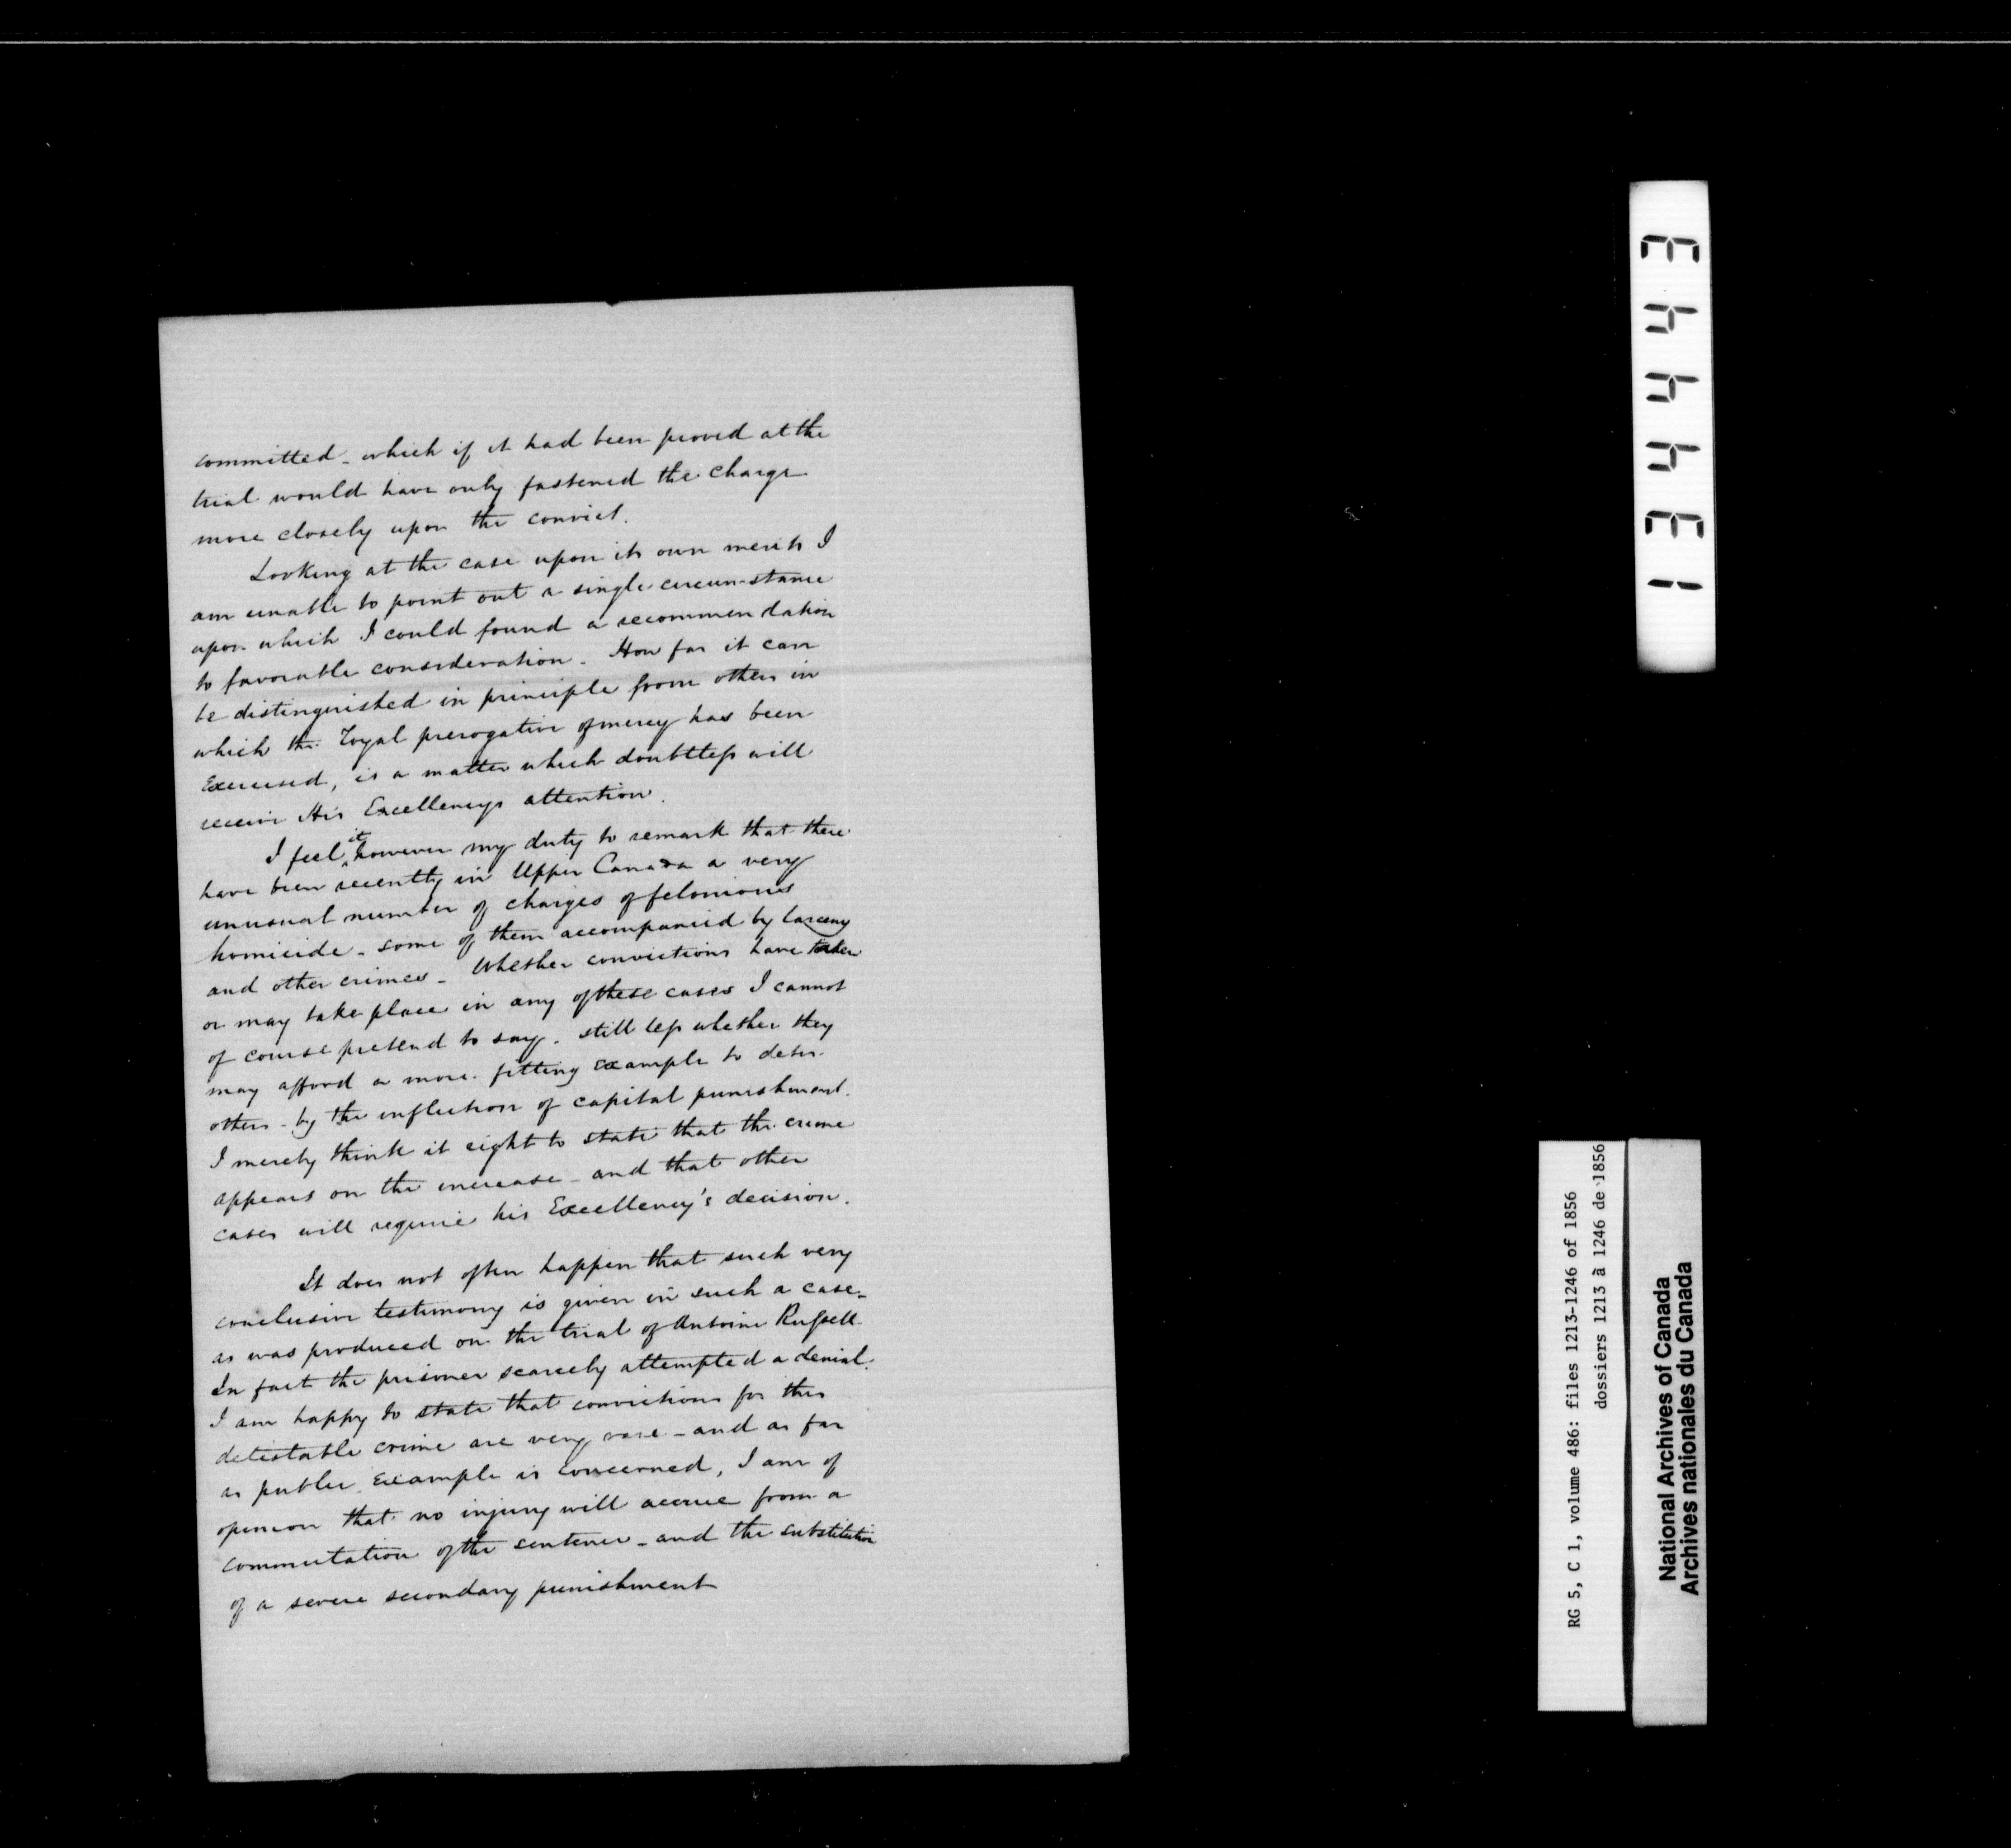 committed - which if it had been proved at the
trial would have only fastened the charge
more closely upon the convict.
Looking at the case upon its own merits I
am unable to point out a single circumstance
upon which I could found a recommendation
to favorable consideration. How far it can
be distinguished in principle from others in
which the Royal prerogative of mercy has been
Exercised, is a matter which doubtless will
receive His Excellencys attention.
I feel it however my duty to remark that there
have been recently in Upper Canada a very
unusual number of charges of felonious
homicide - some of them accompanied by larceny
and other crimes - Whether convictions have taken
or may take place in any of these cases I cannot
of course pretend to say. still less whether they
may afford a more fitting example to deter
others - by the infliction of capital punishment.
I merely think it right to state that the crime
appears on the increase - and that other
cases will require his Excellency's decision.
It does not often happen that such very
conclusive testimony is given in such a case -
as was produced on the trial of Antoine Russell
In fact the prisoner scarcely attempted a denial.
I am happy to state that convictions for this
detestable crime are very rare - and as far
as public Example is concerned, I am of
opinion that no injury will accrue from a
commutation of the sentence - and the substitution
of a severe secondary punishment
134443
RG 5, C 1, volume 486: files 1213-1246 of 1856
dossiers 1213 à 1246 de 1856
National Archives of Canada
Archives nationales du Canada